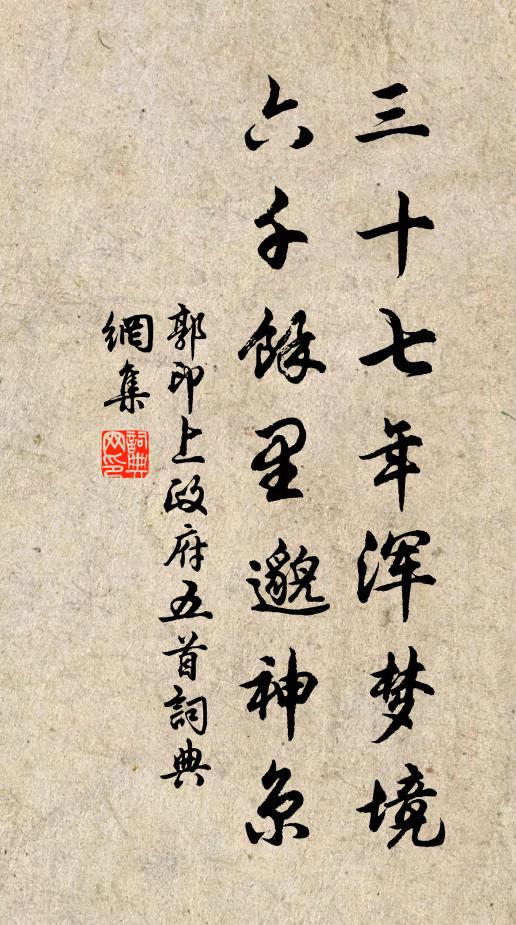 三十七年浑梦境
六千餘里邈神京
郭印上政府五首詞典
網集
詞典网印